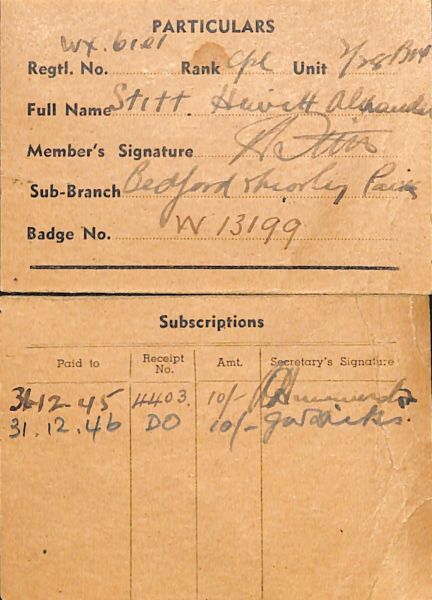 PARTICULARS
Regtl. No. WX. 6101 Rank Cpl Unit 2/28 Bn
Full Name Stitt Hewitt Alexander
Member's Signature H Stitt
Sub-Branch Bedford Morley Park
Badge No. W 13199
Subscriptions
Paid to Receipt No. Amt. Secretary's Signature
31-12-45 4403. 10/-
31.12.46 DO 10/-